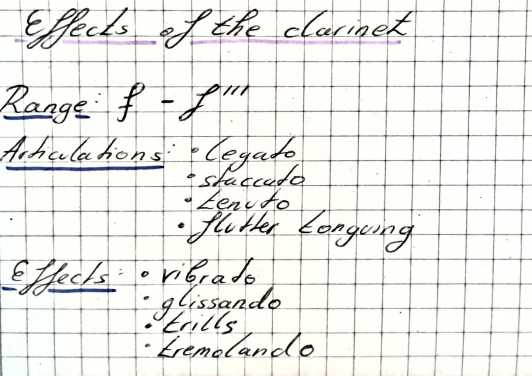 Effects of the clarinet
Range: f - f'''
Articulations: • legato
• staccato
• tenuto
• flutter tonguing
Effects: • vibrato
• glissando
• trills
• tremolando